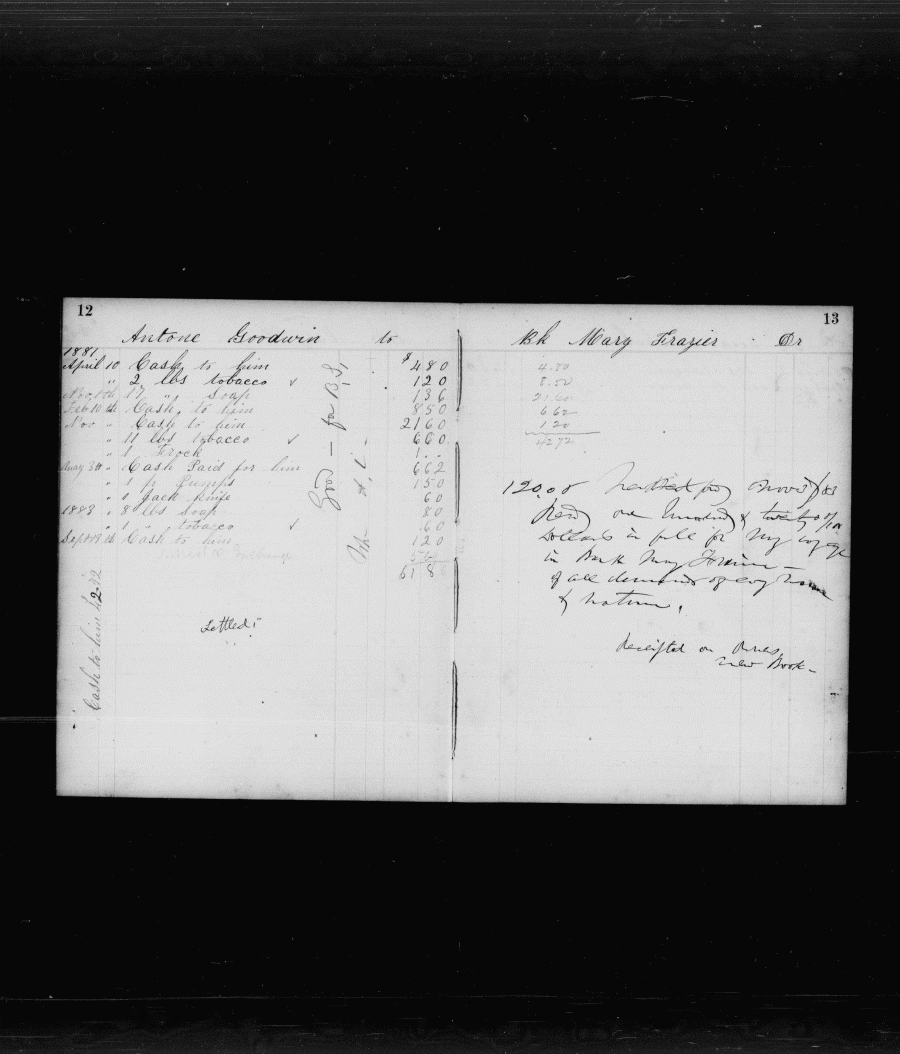 12
Antone Goodwin to
1881
April 10 Cash to him $ 480
" 2 lbs tobacco ✓ 120
Nov 10th 17 " Soap 136
Feb 10th Cash to him 850
Nov " Cash to him 2160
" 11 lbs tobacco ✓ 660
" 1 Frock 1..
May 30 " Cash Paid for him 662
" 1 pr Pumps 150
" 1 Jack Knife 60
1883 " 8 lbs Soap 80
" 1 " tobacco ✓ 60
Sept 18th Cash to him 120
Interest & Exchange
618
Settled
Cash to him 42.72
Good — for B.S.
13
Bk Mary Frazier Dr
4.80
8.50
21.60
6 62
1 20
42 72
120.00
one hundred & twenty
Dollars in full for My voyage
in Bark Mary Frazier —
of all demands of every name
& nature.
Receipted on
new Book —